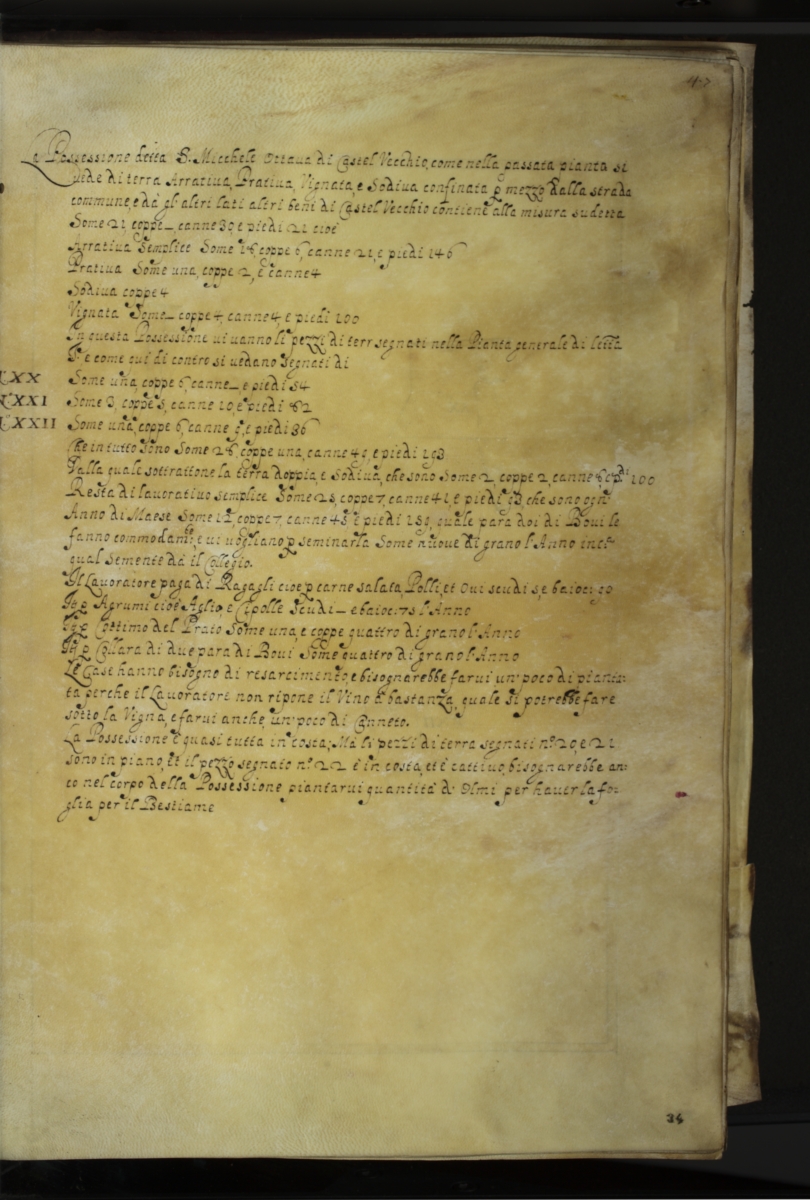 47
La Possessione detta S. Micchele Ottaua di Castel Vecchio, come nella passata pianta si
uede di terra Arratiua, Pratiua, Vignata, e Sodiua confinata p mezzo dalla strada
commune, e da gl'altri lati altri beni di Castel Vecchio contiene alla misura sudetta
Some 21 coppe _ canne 39, e piedi 21 cioè
Arratiua Semplice Some 18, coppe 6, canne 21, e piedi 146
Pratiua Some una, coppe 2, e canne 4
Sodiua coppe 4
Vignata Some _ coppe 4, canne 4, e piedi 100
In questa Possessione ui uanno li pezzi di terr segnati nella Pianta generale di
e come qui di contro si uedano segnati di
XX Some una, coppe 6, canne _ e piedi 54
XXI Some 3, coppe 5, canne 10, e piedi 82
XXII Some una, coppe 6, canne 9, e piedi 36
Che in tutto sono Some 28, coppe una, canne e piedi 103
Dalla quale sottrattone la terra doppia, e Sodiua, che sono Some 2, coppe 2, canne 100
Resta di lauoratiuo semplice Some 25, coppe 7, canne 41, e piedi che sono ogni
Anno di Maese Some 12, coppe 7, canne 45 e piedi 150, quale para doi di Boui le
fanno commodam.te, e ui uogliano p seminarla Some nuoue di grano l'Anno
qual Semente dà il Collegio.
Il Lauoratore paga di Ragagli cioe p carne salata, Polli, et Oui scudi se baioc: 50
It. p Agrumi cioè Aglio, e Cipolle Scudi _ e baioc: 75 l'Anno
It. p Cottimo del Prato Some una, e coppe quattro di grano l'Anno
It. p Collara di due para di Boui Some quattro di grano l'Anno
Le Case hanno bisogno di resarcimento, e bisognarebbe farui un' poco di
ta perche il Lauoratore non ripone il Vino à bastanza, quale si potrebbe fare
sotto la Vigna, e farui anche un' poco di Canneto.
La Possessione è quasi tutta in costa; Ma li pezzi di terra segnati n.º 20, e 21
sono in piano, et il pezzo segnato n.º 22 è in costa, et è cattiuo, bisognarebbe an=
co nel corpo della Possessione piantarui quantità d' Olmi per hauer la fo=
glia per il Bestiame
34